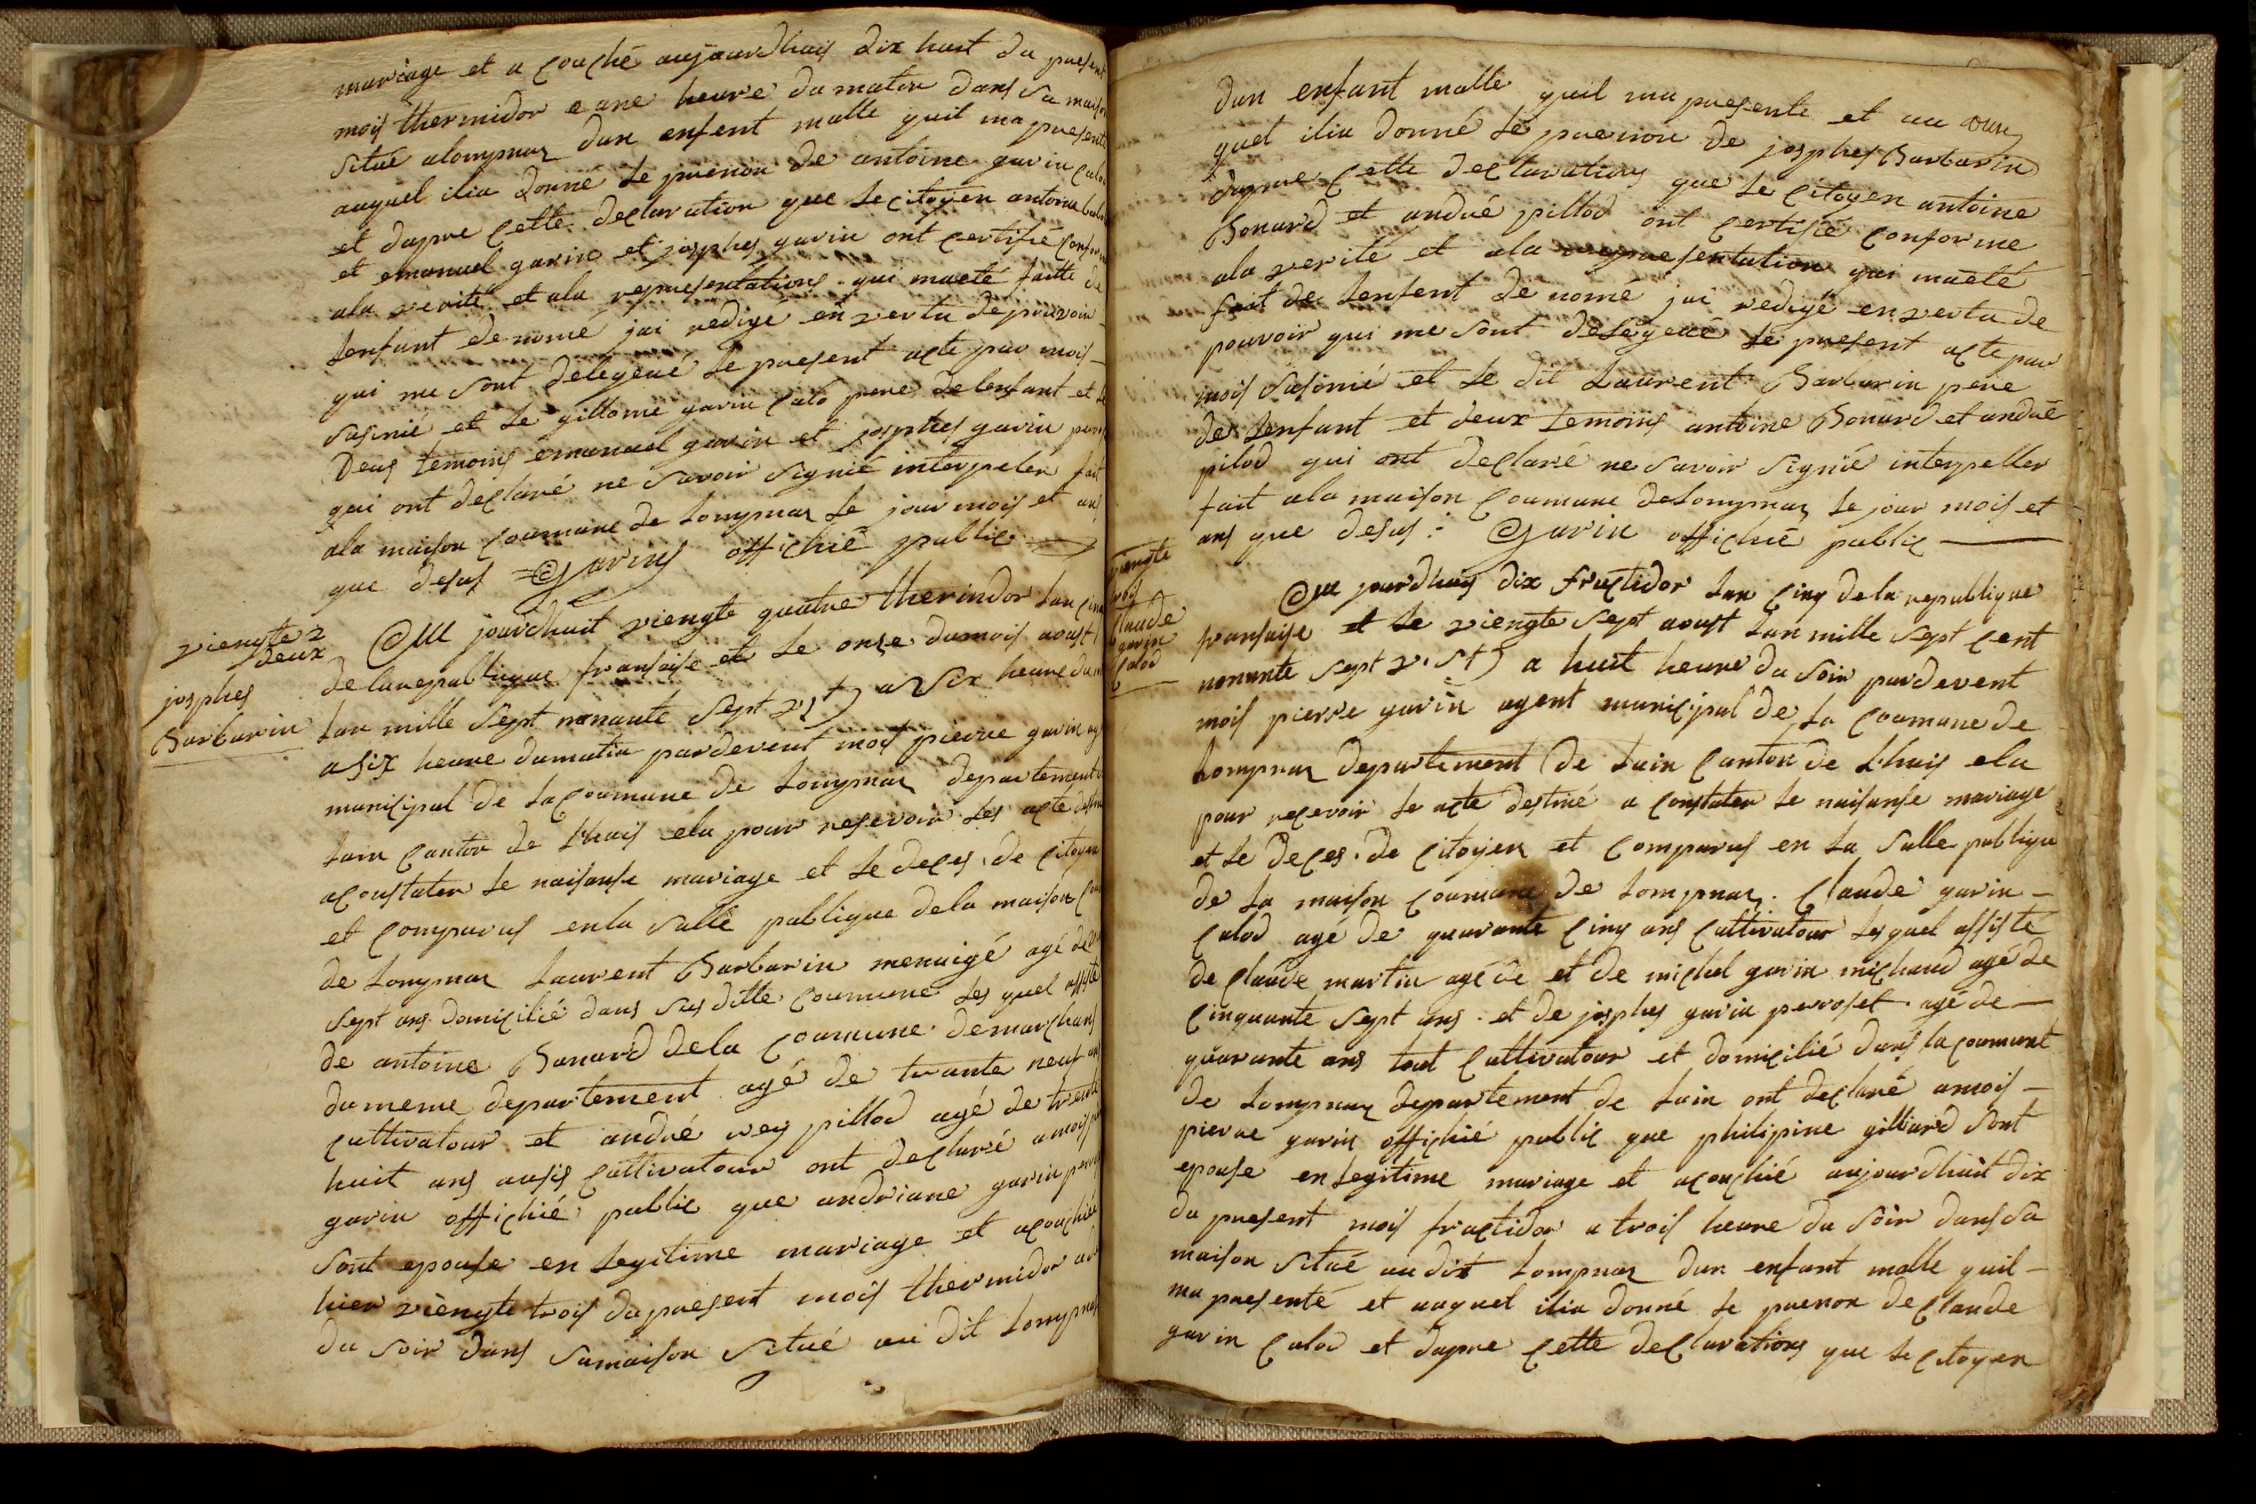 mariage et a couché aujourdhuis dix huit du present
mois thermidor a une heure du matin dans sa maison
situé a lompnaz dun enfent malle quil ma presenté
auquel ilia donné le prenon de antoine gavin calod
et dapre cette declaration que le citoyen antoine
et emanuel gavin et josphes gavin ont certifié conforme
ala verité et ala representations qui maeté faitte de
lenfant denome jai redigé en vertu de pouvoir
qui me sont delegeué le present acte par mois
susinié et le gillome gavin calo pere de lenfant et le
deus temoins emanuel gavin et josphes gavin
qui ont declaré ne savoir signié interpeler fait
ala maison coumune de lompnaz le jour mois et ans
que desus = Gavins offichié public
viengte 2
deux
josphes
Barbarin
Au jourdhuit viengte quatre therimdor lan cinq
de larepublique fransaise et le onze dumois aoust
lan mille sept nonante sept v. st) a six heure du
a six heure dumatin pardevent mois pierre gavin
municipal de la coumune de lompnaz departement
lain canton de lhuis elu pour resevoir les acte
a coustater le naisanse mariage et le deces de citoyen
et comparus en la salle publique dela maison
de lompnaz laurent Barbarin menaigé agé de
sept ans domicilié dans sus ditte coumune lesquel assisté
de antoine Bonard dela coumune de marchans
du meme departement agé de trante neuf ans
cultivatour et andré rey pillod agé de trente
huit ans ausis cultivatour ont declaré a mois
gavin offichié public que andriane gavin
sont epouse en legitime mariage et acouchié
hier viengte trois du present mois thermidor
du soir dans samaison situé au dit lompnaz
dun enfant malle quil ma presenté et au
quel ilia donné le prenon de josphes Barbarin
dapre cette declarations que le citoyen antoine
Bonard et andré pillod ont certifié conforme
ala verité et ala representation qui maeté
fait de lenfent denomé jai redigé en vertu de
pouvoir qui me sont delegeué le present acte par
mois susinié et le dit laurent Barbarin pere
de lenfant et deux temoins antoine Bonard et andré
pilod qui ont declaré ne savoir signié interpeller
fait ala maison coumune delompnaz le jour mois et
ans que desus : Gavin offichié public
viengte
trois
Claude
gavin
Calod
Au jourdhuis dix fructidor lan cinq dela republique
fransaise et le viengte sept aoust lan mille sept cent
nonante sept v. st) a huit heure du soir pardevent
mois pierre gavin agent municipal de la coumune de
lompnaz departement de lain canton de lhuis elu
pour recevoir le acte destiné a coustater le naisanse mariage
et le deces de citoyen et comparus en la salle publique
de la maison coumune de lompnaz. Claude gavin
calod age de quarante cinq ans cultivatour lesquel assisté
de claude martin agé de et de michel gavin michaud agé de
cinquante sept ans. et de josphes gavin perroset agé de
quarante ans tout cultivatour et domicilié dans la coumune
de lompnaz departement de lain ont declaré amois
pierre gavin offichié public que philipine gilliard sont
epouse en legitime mariage et acouchié aujourdhuit dix
du present mois fructidor a trois heure du soir dans sa
maison situé au dit lompnaz dun enfant malle quil
ma presenté et auquel ilia donné le prenon de claude
gavin calod et dapre cette declarations que le citoyen